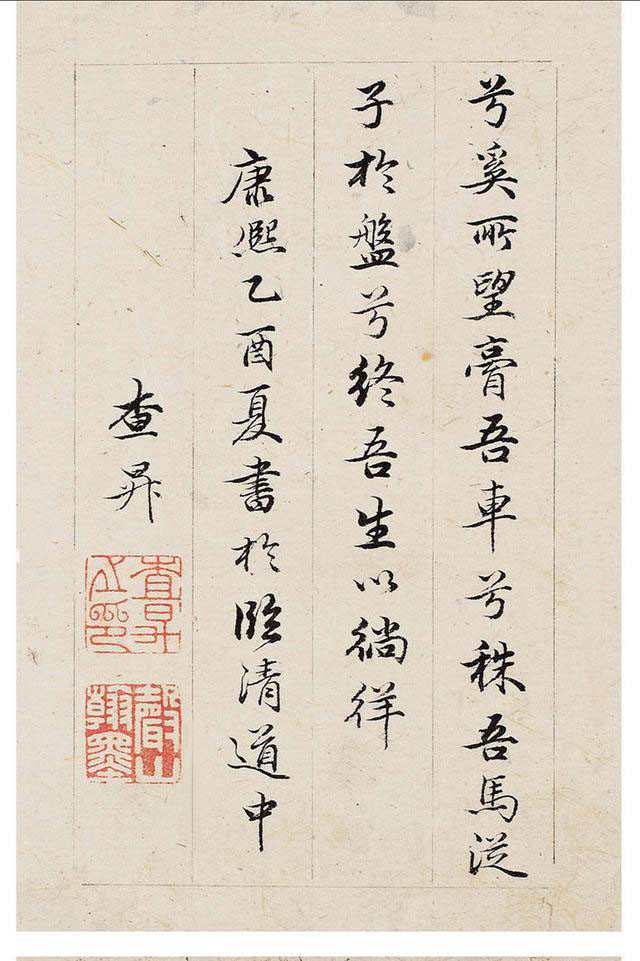 兮奚所望膏吾車兮秣吾馬從
子於盤兮終吾生以徜徉
康熙乙酉夏書於臨清道中
查昇
查昇之印
聲山翰墨